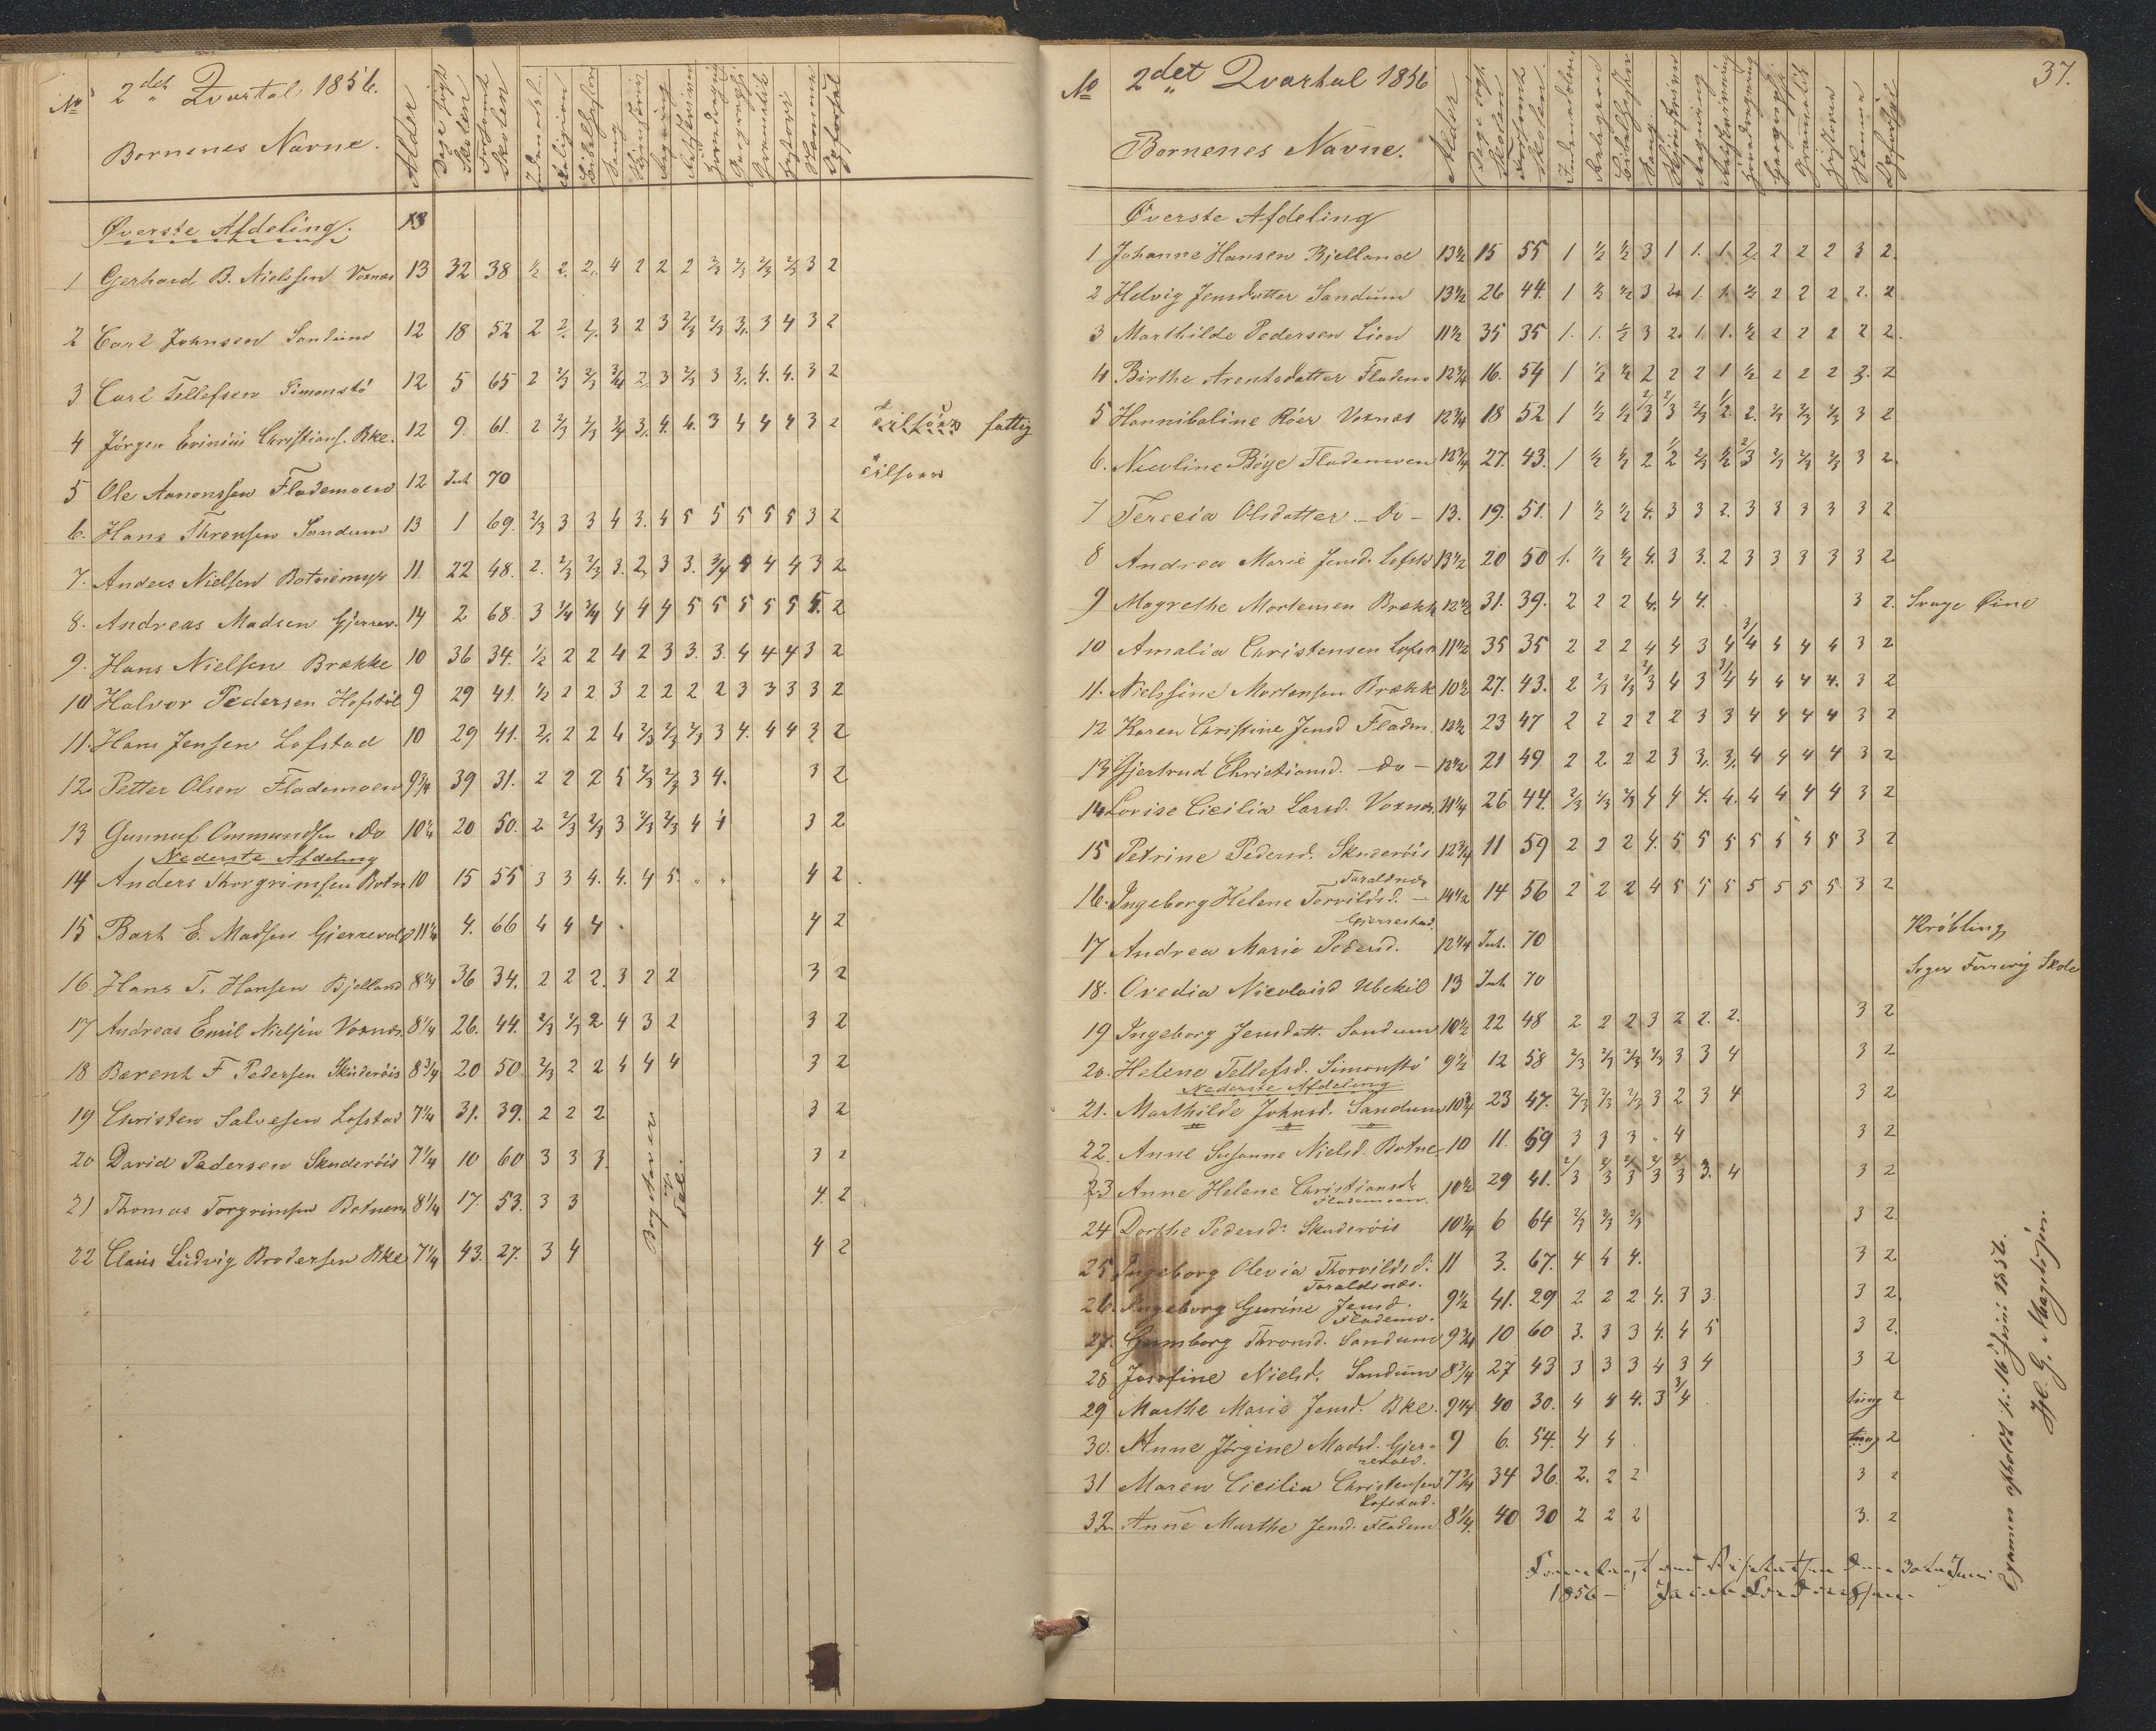 No 2det Qvartal 1856.
Børnenes Navne.
Alder
Øverste Afdeling. 13
1 Gjerhard B. Nielssen Voxnæs 13 32 38 ½ 2. 2. 4 2 2 2 2/3 2/3 2/3 2/3 3 2
2 Carl Johnsen Sandum 12 18 52 2 2. 2. 3 2 3 2/3 2/3 3. 3 4 3 2
3 Carl Tellefsen Simonstö 12 5 65 2 2/3 2/3 3/4 2 3 2/3 3 3. 4. 4. 3 2
4 Jörgen Christians. Bke. 12 9. 61. 2 2/3 2/3 3/4 3. 4. 4. 3 4 4 4 3 2 fattig
5 Ole Aanonssen Flademoen 12 Int 70
6. Hans Thronsen Sandum 13 1 69. 2/3 3 3 4 3. 4 5 5 5 5 5 3 2
7. Anders Nielsen Botnemyr 11. 22 48. 2. 2/3 2/3 3. 2 3 3. 3/4 4 4 4 3 2
8. Andreas Madsen Gjerrev. 14 2 68. 3 3/4 3/4 4 4 4 5 5 5 5 5 5. 2
9. Hans Nielsen Brække 10 36 34. ½ 2 2 4 2 3 3. 3. 4 4 4 3 2
10 Halvor Pedersen Hofstöl 9 29 41. ½ 2 2 3 2 2 2 2 3 3 3 3 2
11. Hans Jensen Lofstad 10 29 41. 2. 2 2 4 2/3 2/3 2/3 3 4. 4 4 3 2
12. Petter Olsen Flademoen 9¾ 39 31. 2 2 2 5 2/3 2/3 3 4. 3 2
13 Gunnuf Ommundsen Do 10¼ 20 50. 2 2/3 2/3 3 2/3 2/3 4 4 3 2
Nederste Afdeling
14 Anders Thorgrimsen Botn 10 15 55 3 3 4. 4. 4 5. " " 4 2
15 Bart E. Madsen Gjerrevold 11¼ 4. 66 4 4 4 4 2
16. Hans T. Hansen Bjelland 8¼ 36 34. 2 2 2. 3 2 2 3 2
17 Andreas Emil Nielsen Voxnæs. 8¼ 26. 44. 2/3 2/3 2 4 3 2 3 2
18 Berent F Pedersen Skuderöis 8¾ 20 50 2/3 2 2 4 4 4 3 2
19 Christen Salvesen Lofstad 7¼ 31. 39. 2 2 2 3 2
20 David Pedersen Skuderöis 7¼ 10 60 3 3 3. 3 2
21 Thomas Torgrimsen Botnem 8¼ 17. 53. 3 3 4. 2
22 Claus Ludvig Brodersen Bke 7¼ 43. 27. 3 4 4 2
Bogstaver
og
Tal.
37.
No 2det Qvartal 1856
Børnenes Navne.
Alder
Øverste Afdeling
1 Johanne Hansen Bjelland 13½ 15 55 1 ½ ½ 3 1 1. 1. 2. 2 2 2 3 2.
2 Helvig Jensdatter Sandum 13½ 26 44. 1 ½ ½ 3 2. 1. 1. ½ 2 2 2 2. 2
3 Marthilde Pedersen Lien 11½ 35 35 1. 1. ½ 3 2. 1. 1. ½ 2 2 2 2 2.
4 Birthe Arentsdatter Fladem 12¾ 16. 54 1 ½ ½ 2 2 2 1 ½ 2 2 2 3. 2
5 Hannibaline Röer Voxnæs 12¾ 18 52 1 ½ ½ 2/3 2/3 2/3 ½ 2. 2/3 2/3 2/3 3 2
6. Nicoline Böye Flademoen 12¾ 27. 43. 1 ½ ½ 2 ½ 2/3 ½ 2/3 2/3 2/3 2/3 3 2.
7 Terecia Olsdatter - Do - 13. 19. 51. 1 ½ ½ 4. 3 3 2. 3 3 3 3 3 2
8 Andrea Marie Jensd. Lofsta 13½ 20 50 1. ½ ½ 4. 3 3. 2 3 3 3 3 3 2
9 Magrethe Mortensen Brækk 12½ 31. 39. 2 2 2 4. 4 4. 3 2. Svage Öine
10 Amalia Christensen Lofst 11½ 35 35 2 2 2 4 4 3 4 3/4 4 4 4 3 2
11. Nielsine Mortensen Brække 10½ 27. 43. 2 2/3 2/3 2/3 4 3 3/4 4 4 4 4. 3 2
12 Karen Christine Jensd Fladm. 12½ 23 47 2 2 2 2 2 3 3 4 4 4 4 3 2
13 Gjertrud Christiansd. - do - 12½ 21 49 2 2 2 2 3 3. 3. 4 4 4 4 3 2
14. Lovise Cicilia Larsd. Voxnæs. 11¼ 26 44. 2/3 2/3 2/3 4 4 4. 4. 4 4 4 4 3 2
15 Petrine Pedersd. Skuderöis 12¾ 11 59 2 2 2 4. 5 5 5 5 5 5 5 3 2
16. Ingeborg Helene Torvildsd. Taraldsnæs 14½ 14 56 2 2 2 4 5 5 5 5 5 5 5 3 2
17 Andrea Marie Pedersd. 12¼ Int. 70 Kröbling
18. Ovedia Nicolaisd Ubekil 13 Int 70 Söger Skole
19 Ingeborg Jensdatt. Sandum 10½ 22 48 2 2 2 3 2 2. 2. 3 2
20. Helene Tellefsd. Simonstö 9½ 12 58 2/3 2/3 2/3 2/3 3 3 4 3 2
Nederste Afdeling
21. Marthilde Johnsd. Sandum 10¾ 23 47. 2/3 2/3 2/3 3 2 3 4 3 2
22. Anne Susanne Nielsd. Botne 10 11. 59 3 3 3 " 4 3 2
23 Anne Helene Christiansd. 10½ 29 41. 2/3 2/3 2/3 2/3 2/3 3. 4 3 2
Flademoen.
24 Dorthe Pedersd. Skuderöis 10¾ 6 64 2/3 2/3 2/3 3 2.
25 Ingeborg Olevia Thorvildsd. 11 3. 67. 4 4 4. 3 2
Taraldsnæs.
26. Ingeborg Gurine Jensd. 9½ 41. 29 2 2 2 4. 3 3 3 2.
Flademo.
27. Gumborg Thronsd. Sandum 9¾ 10 60 3. 3 3 4. 4 5 3 2.
28 Josefine Nielsd. Sandum 8¾ 27 43 3 3 3 4 3 4 3 2
29 Marthe Marie Jensd. Bke. 9¼ 40 30. 4 4 4. 3 3/4 2
30. Anne Jörgine Madsd. Gjer- 9 6. 54. 4 4 2
revold.
31 Maren Cicilia Christensen 7¾ 34 36. 2. 2 2 3 2
Lofstad.
32. Anne Marthe Jensd. Fladem 8¼. 40 30 2 2 2 3. 2
1856 -
Examen afholdt d: 16 Juni 1856.